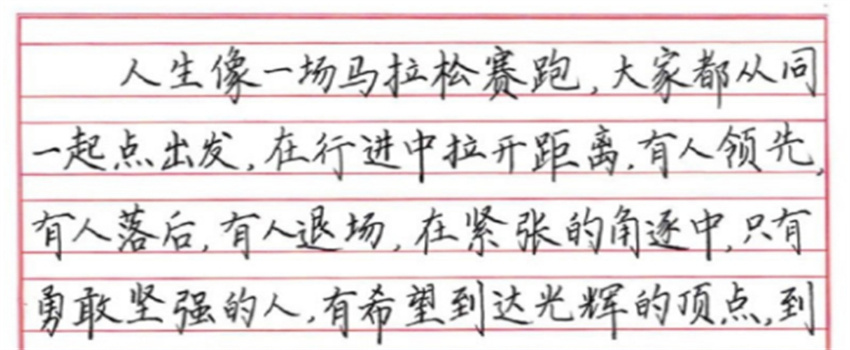 人生像一场马拉松赛跑,大家都从同
一起点出发,在行进中拉开距离.有人领先,
有人落后,有人退场,在紧张的角逐中,只有
勇敢坚强的人,有希望到达光辉的顶点,到